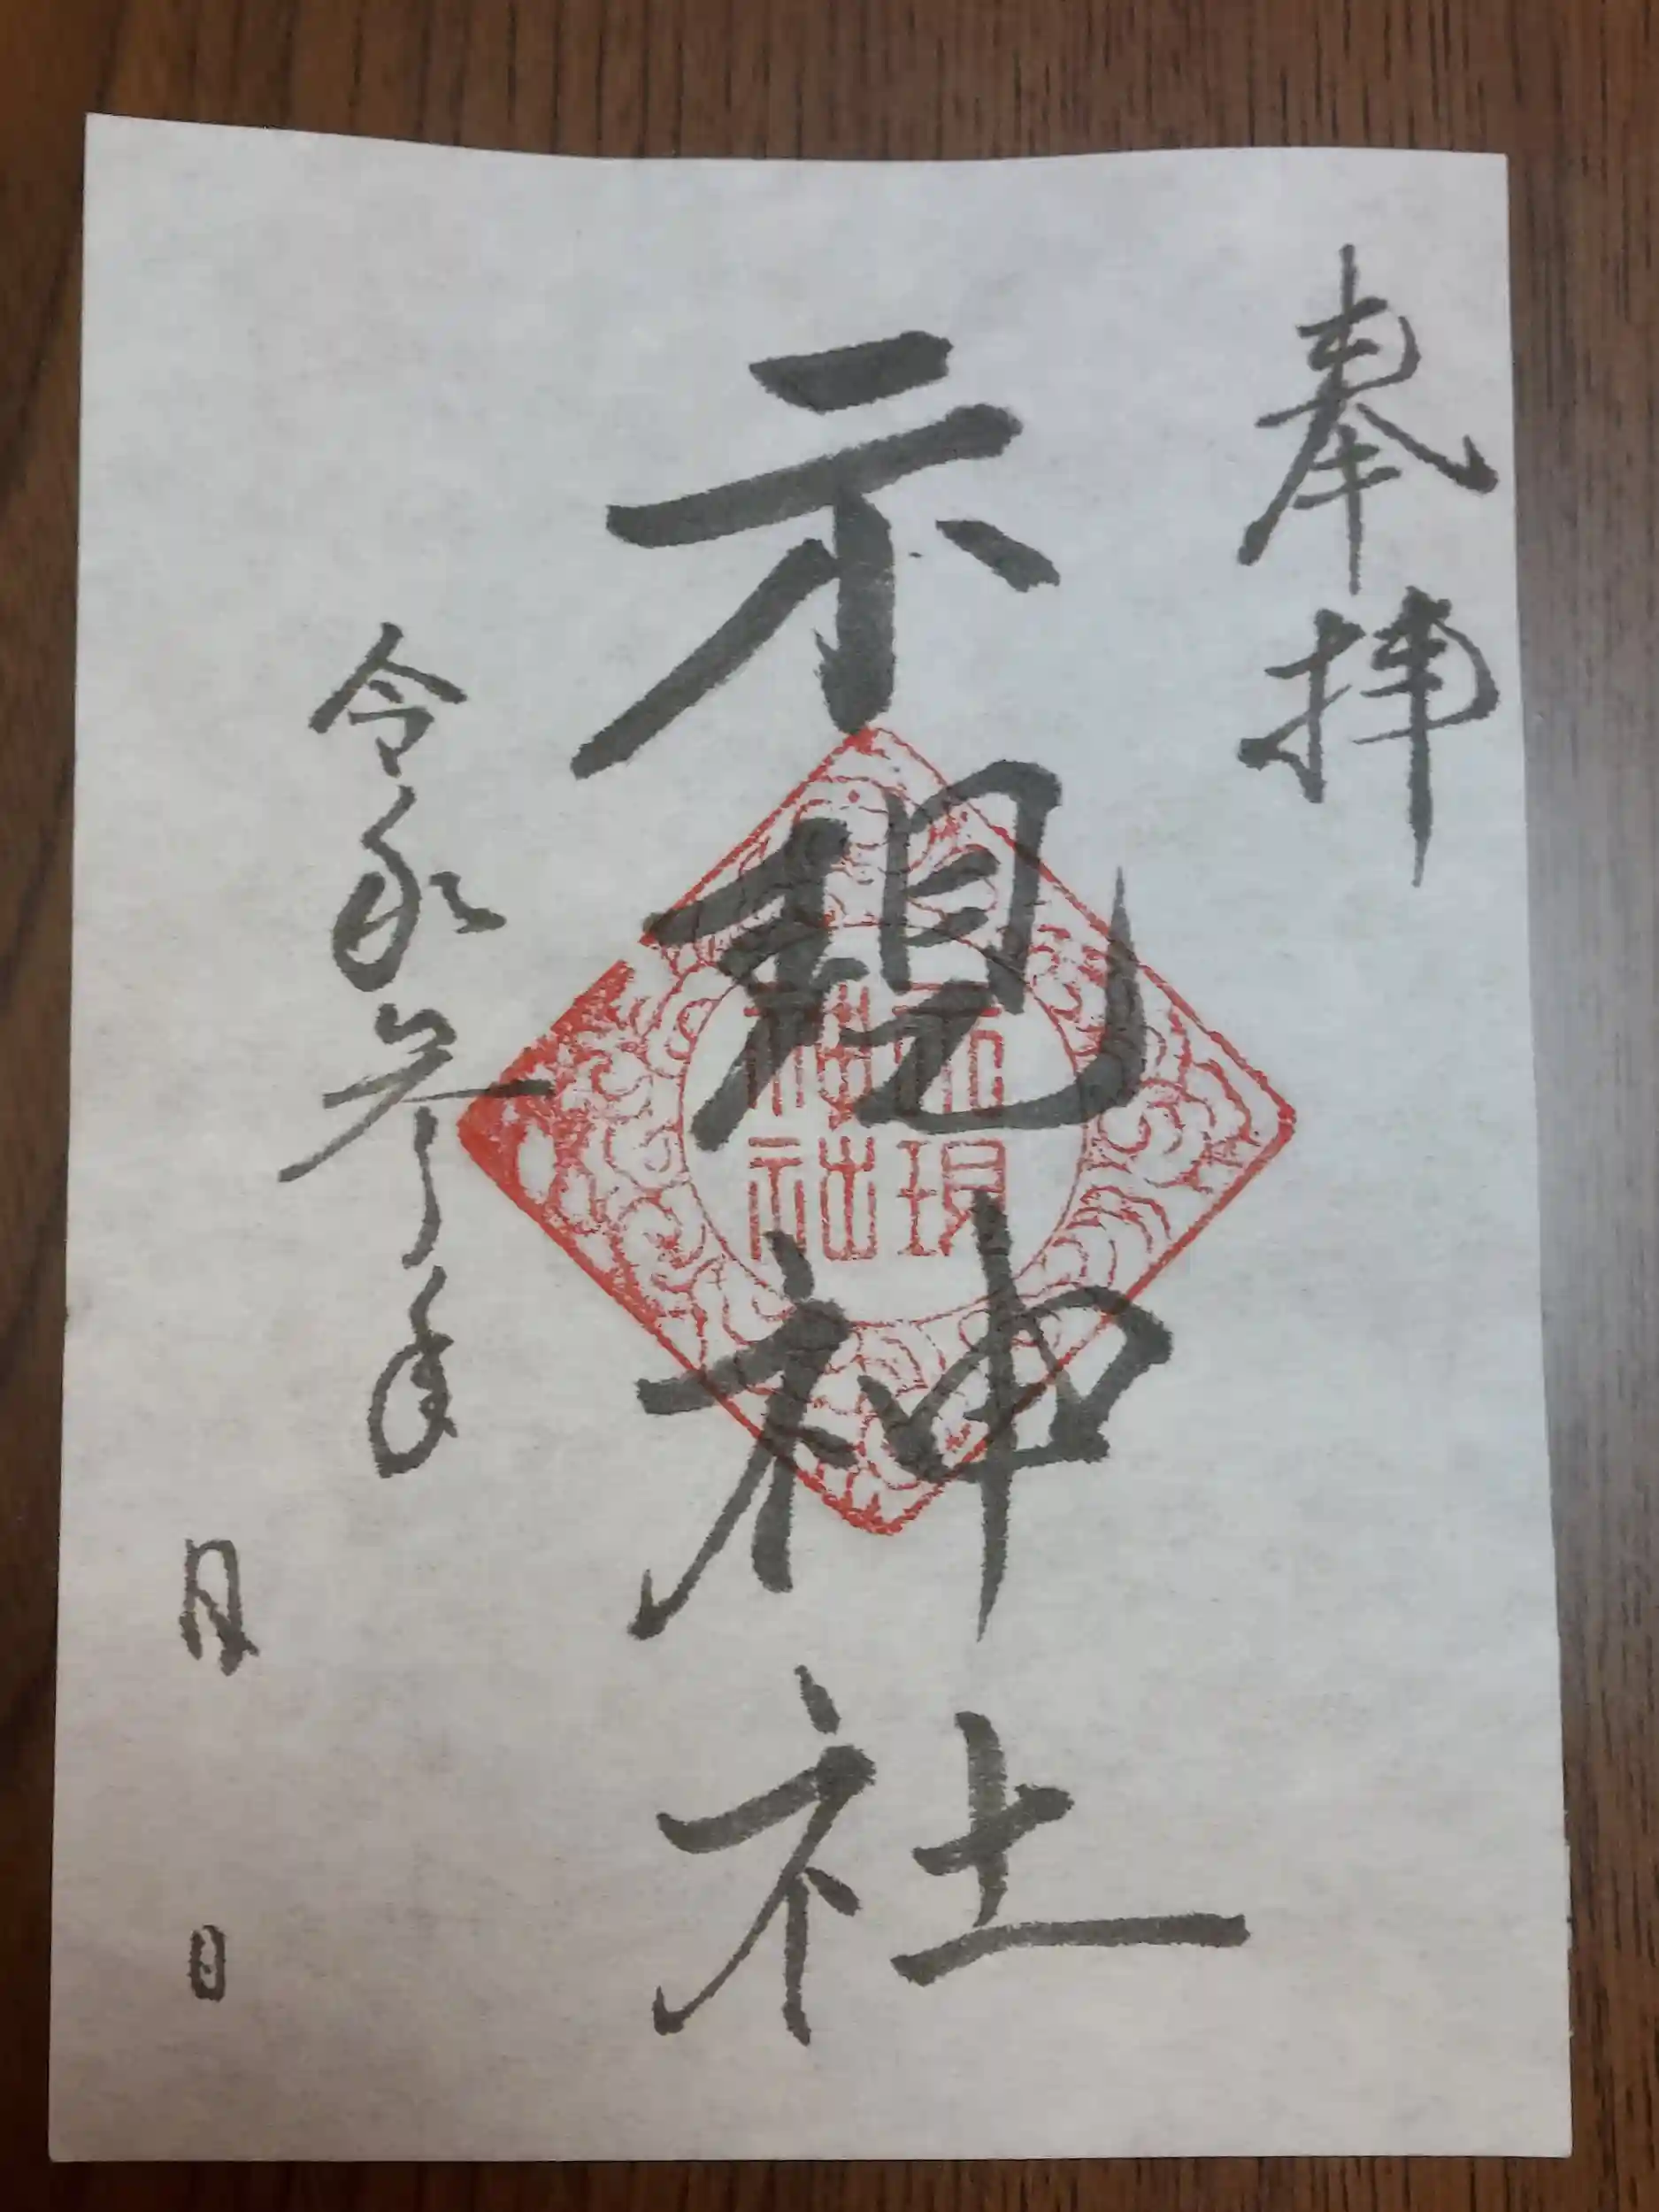 奉拝
示現神社
示現
神社
令和参年
月
日